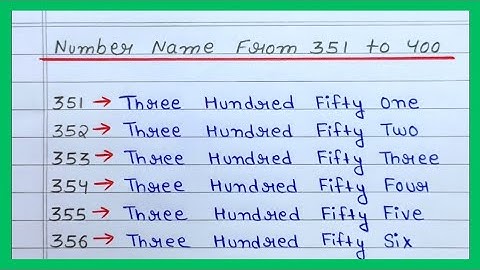 Number Name From 351 to 400
351 → Three Hundred Fifty One
352 → Three Hundred Fifty Two
353 → Three Hundred Fifty Three
354 → Three Hundred Fifty Four
355 → Three Hundred Fifty Five
356 → Three Hundred Fifty Six